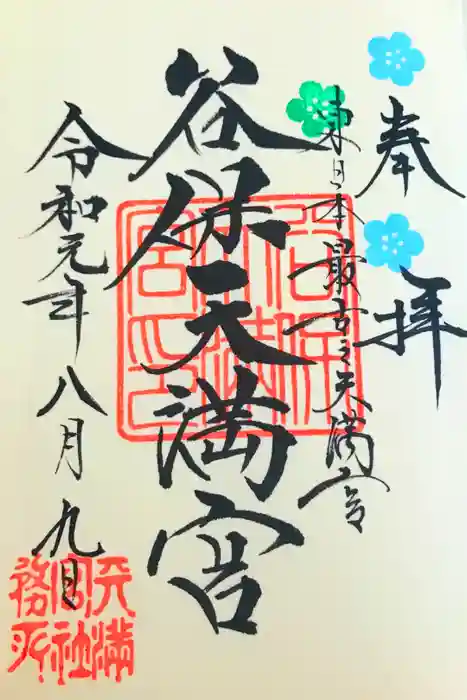 奉拝
東日本最古之天満宮
谷保天満宮
令和元年八月九日
天満
宮社
務所